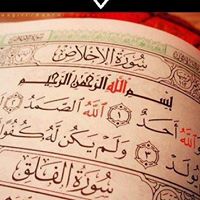 سُورَةُ الإِخْلَاصِ
بِسْمِ اللَّهِ الرَّحْمَٰنِ الرَّحِيمِ
اللَّهُ أَحَدٌ ١ اللَّهُ الصَّمَدُ ٢
يُولَدْ ٣ وَلَمْ يَكُن لَّهُ كُفُوًا
سُورَةُ الْفَلَقِ